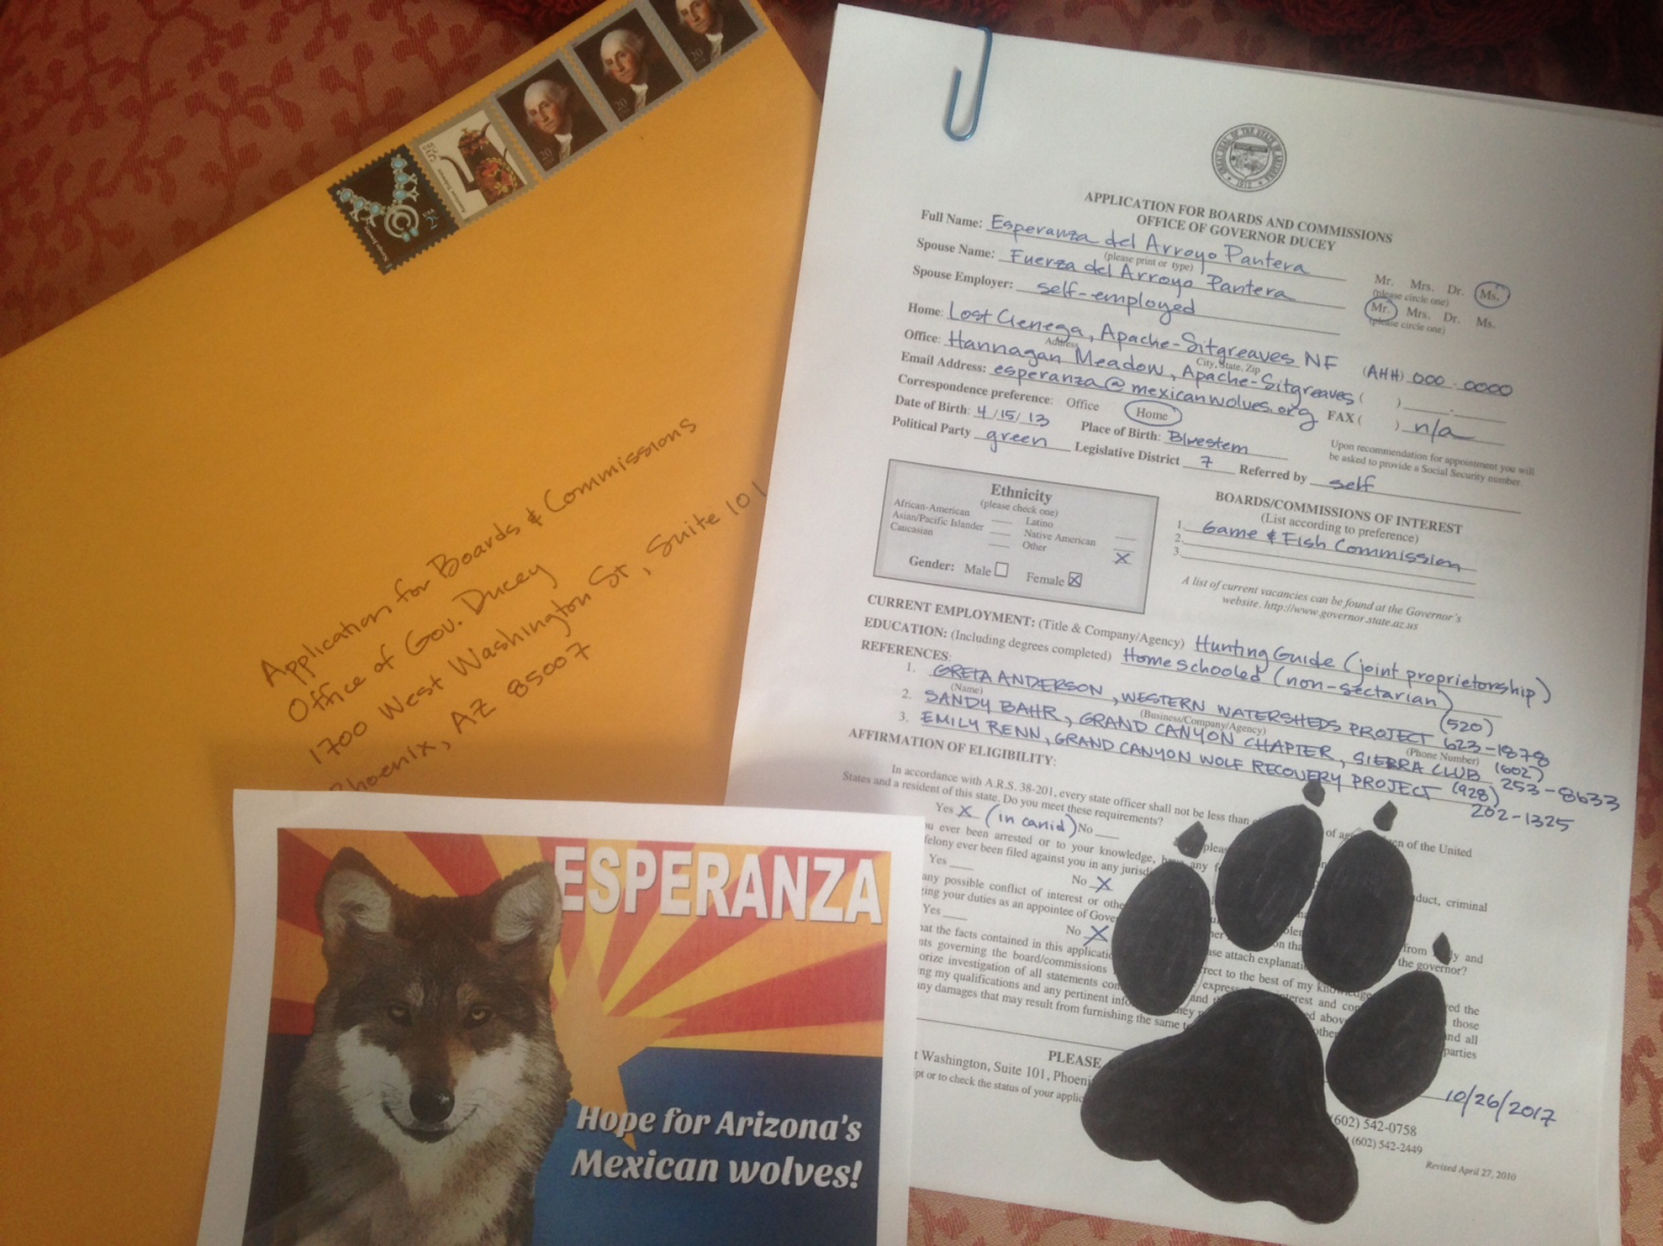 Application for Boards & Commissions
Office of Gov. Ducey
1700 West Washington St, Suite 101
Phoenix, AZ 85007
20
20
20
ESPERANZA
Hope for Arizona's
Mexican wolves!
APPLICATION FOR BOARDS AND COMMISSIONS
OFFICE OF GOVERNOR DUCEY
Full Name: Esperanza del Arroyo Pantera
(please print or type)
Mr. Mrs. Dr. Ms.
(please circle one)
Spouse Name: Fuerza del Arroyo Pantera
Mr. Mrs. Dr. Ms.
(please circle one)
Spouse Employer: self-employed
Home: Lost Cienega, Apache-Sitgreaves NF (AHH) 000.0000
Address City, State, Zip
Office: Hannagan Meadow, Apache-Sitgreaves ( )
Email Address: esperanza@mexicanwolves.org FAX ( ) n/a
Correspondence preference: Office Home
Date of Birth: 4/15/13 Place of Birth: Bluestem
Upon recommendation for appointment you will
be asked to provide a Social Security number.
Political Party green Legislative District 7 Referred by self
Ethnicity
(please check one)
African-American Latino
Asian/Pacific Islander Native American
Caucasian Other X
Gender: Male Female X
BOARDS/COMMISSIONS OF INTEREST
(List according to preference)
1. Game & Fish Commission
2.
3.
A list of current vacancies can be found at the Governor's
website. http://www.governor.state.az.us
CURRENT EMPLOYMENT: (Title & Company/Agency) Hunting Guide (joint proprietorship)
EDUCATION: (Including degrees completed) Homeschooled (non-sectarian)
REFERENCES:
1. GRETA ANDERSON, WESTERN WATERSHEDS PROJECT (520) 623-1878
(Name) (Business/Company/Agency) (Phone Number)
2. SANDY BAHR, GRAND CANYON CHAPTER, SIERRA CLUB (602) 253-8633
3. EMILY RENN, GRAND CANYON WOLF RECOVERY PROJECT (928) 202-1325
AFFIRMATION OF ELIGIBILITY:
In accordance with A.R.S. 38-201, every state officer shall not be less than of the United
States and a resident of this state. Do you meet these requirements?
Yes X (in canid) No
ever been arrested or to your knowledge, any duct, criminal
felony ever been filed against you in any
Yes No X
any possible conflict of interest or from and
your duties as an appointee of the governor?
Yes No X ase attach
at the facts contained in this rect to the best of my
governing the board/commissions those
investigation of all statements and all
my qualifications and any pertinent parties
any damages that may result from furnishing the same
10/26/2017
PLEASE
t Washington, Suite 101,
pt or to check the status of your
(602) 542-0758
(602) 542-2449
Revised April 27, 2010